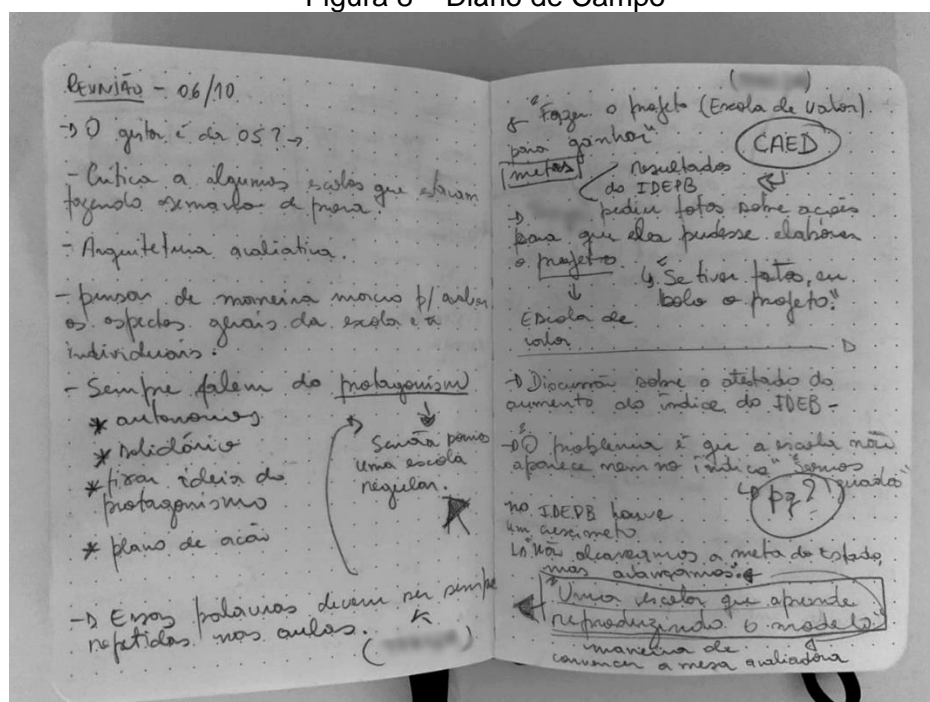 Figura 8 – Diário de Campo
REUNIÃO - 06/10
→ O gestor é da OS? →
- Crítica a algumas escolas que estavam
fazendo semana de prova.
- Arquitetura avaliativa.
- pensar de maneira macro p/ avaliar
os aspectos gerais da escola e
individuais.
- Sempre falem do protagonism
* autonomia
* solidário
* fixar ideia do
protagonismo
* plano de ação
Senão somos
uma escola
regular.
→ Essas palavras devem ser sempre
repetidas nas aulas.
"Fazer o projeto (Escola de valor)
para ganhar"
metas
resultados
do IDEPB
CAED
→ pediu fotos sobre ações
para que ela pudesse elaborar
o projeto
↳ "Se tiver fotos, eu
bolo o projeto."
Escola de
valor
→ Discussão sobre o atestado do
aumento do índice do IDEB -
→ "O problema é que a escola não
aparece nem no índice" "Somos
↳ pq?
no IDEPB houve
um crescimento
↳ "Não alcançamos a meta do Estado,
mas avançamos."
"Uma escola que aprende
reproduzindo o modelo."
maneira de
convencer a mesa avaliadora